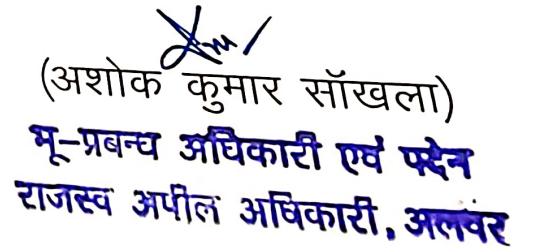 (अशोक कुमार सॉखला)
भू-प्रबन्ध अधिकारी एवं पदेन
राजस्व अपील अधिकारी, अलवर